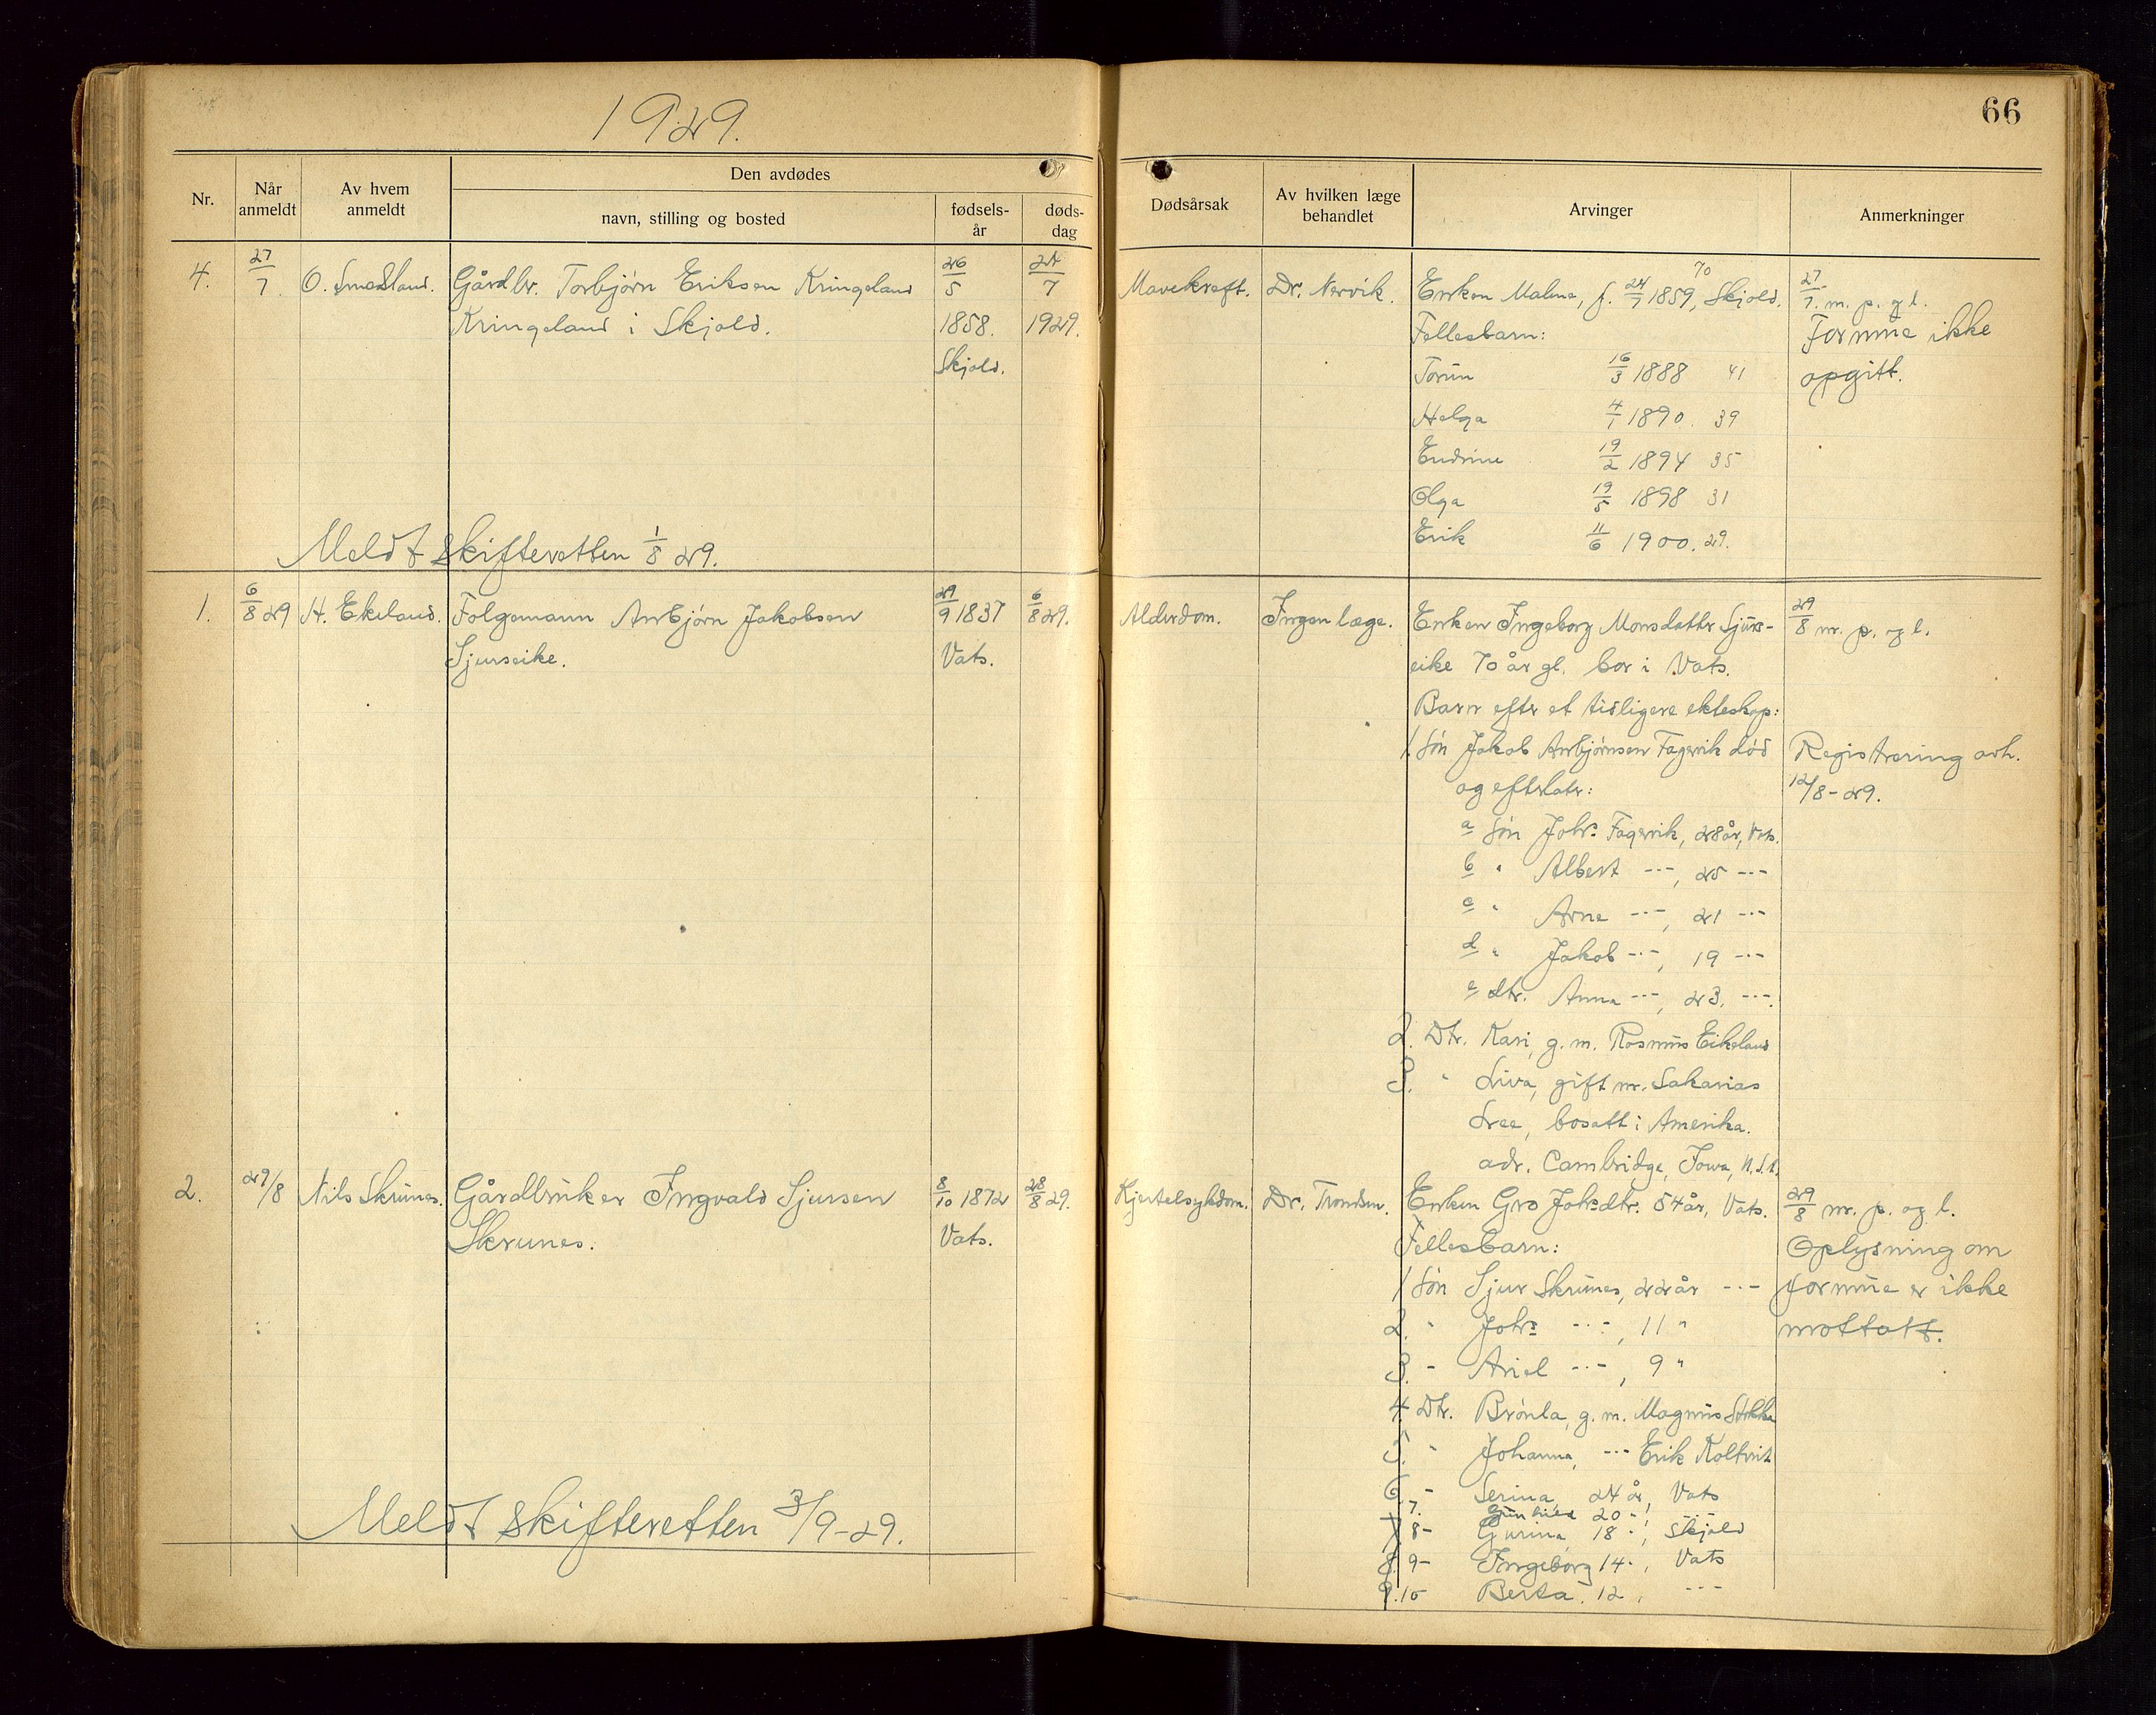 1929.
66
Nr.
Når anmeldt
Av hvem anmeldt
Den avdødes
navn, stilling og bosted
fødsels-år
døds-dag
Dødsårsak
Av hvilken læge behandlet
Arvinger
Anmerkninger
4. 27/7. O. Smedsland. Gårdbr. Torbjørn Eriksen Kringeland 26/5 24/7 Mavekreft. Dr. Nervik. Enken Malene, f. 24/7 1859, 70 Skjold. 27/7. m. p. og l.
Kringeland i Skjold. 1858. 1929. Fellesbarn: Formue ikke
Skjold. Torun 16/3 1888 41 opgitt.
Helga 4/1 1890. 39
Endrine 19/2 1894 35
Olga 19/5 1898 31
Erik 11/6 1900. 29.
Meldt skifteretten 1/8 29.
1. 6/8 29 H. Ekeland. Folgemann Anbjørn Jakobsen 29/9 1837 6/8 29. Alderdom. Ingen læge. Enken Ingeborg Monsdatter Sjurs- 29/8 m. p. og l.
Sjurseike. Vats. eike 70 år gl. bor i Vats.
Barn efter et tidligere ekteskap:
1. Søn Jakob Anbjørnsen Fagervik død Registrering avh.
og efterlater: 12/8-29.
a søn Johs. Fagervik, 28 år, Vats.
b " Albert -"-, 25 -"-
c " Arne -"-, 21 -"-
d " Jakob -"-, 19 -"-
e dtr. Anna -"-, 23. -"-.
2. Dtr. Kari, g. m. Rasmus Eikeland
3. " Siva, gift m. Sakarias
Sree, bosatt i Amerika.
adr. Cambridge, Iowa, U.S.A.
2. 29/8 Nils Skrunes. Gårdbruker Ingvald Sjursen 8/10 1872 28/8 29. Kjertelsykdom. Dr. Trondsen. Enken Gro Johs.dtr. 54 år, Vats. 29/8 m. p. og l.
Skrunes. Vats. Fellesbarn: Oplysning om
1 Søn Sjur Skrunes, 22 år -"- formue er ikke
2. " Johs. -"-, 11 " mottatt.
3. - Ariel -"-, 9 "
4. Dtr. Brønla, g. m. Magnus Stokka
5. " Johanna, -"- Erik Koltveit
6. - Serina, 24 år, Vats
7. Gunhild 20 -, -"-
7 8 - Gurina, 18 -, Skjold
8. 9 - Ingeborg 14 -, Vats
9. 10 Berta. 12, -"-
Meldt skifteretten 3/9-29.